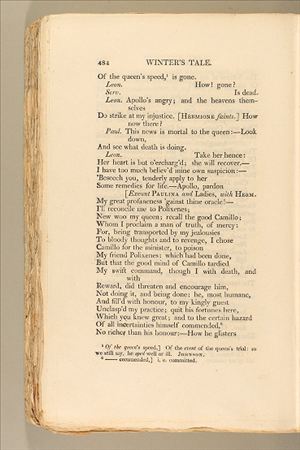 484 WINTER'S TALE.
Of the queen's speed,⁵ is gone.
Leon. How! gone?
Serv. Is dead.
Leon. Apollo's angry; and the heavens them-
selves
Do strike at my injustice. [HERMIONE faints.] How
now there?
Paul. This news is mortal to the queen:—Look
down,
And see what death is doing.
Leon. Take her hence:
Her heart is but o'ercharg'd; she will recover.—
I have too much believ'd mine own suspicion:—
'Beseech you, tenderly apply to her
Some remedies for life.—Apollo, pardon
[Exeunt PAULINA and Ladies, with HERM.
My great profaneness 'gainst thine oracle!—
I'll reconcile me to Polixenes;
New woo my queen; recall the good Camillo;
Whom I proclaim a man of truth, of mercy:
For, being transported by my jealousies
To bloody thoughts and to revenge, I chose
Camillo for the minister, to poison
My friend Polixenes: which had been done,
But that the good mind of Camillo tardied
My swift command, though I with death, and
with
Reward, did threaten and encourage him,
Not doing it, and being done: he, most humane,
And fill'd with honour, to my kingly guest
Unclasp'd my practice; quit his fortunes here,
Which you knew great; and to the certain hazard
Of all incertainties himself commended,⁶
No richer than his honour:—How he glisters
⁵ Of the queen's speed,] Of the event of the queen's trial: so
we still say, he sped well or ill. JOHNSON.
⁶ —— commended,] i. e. committed.